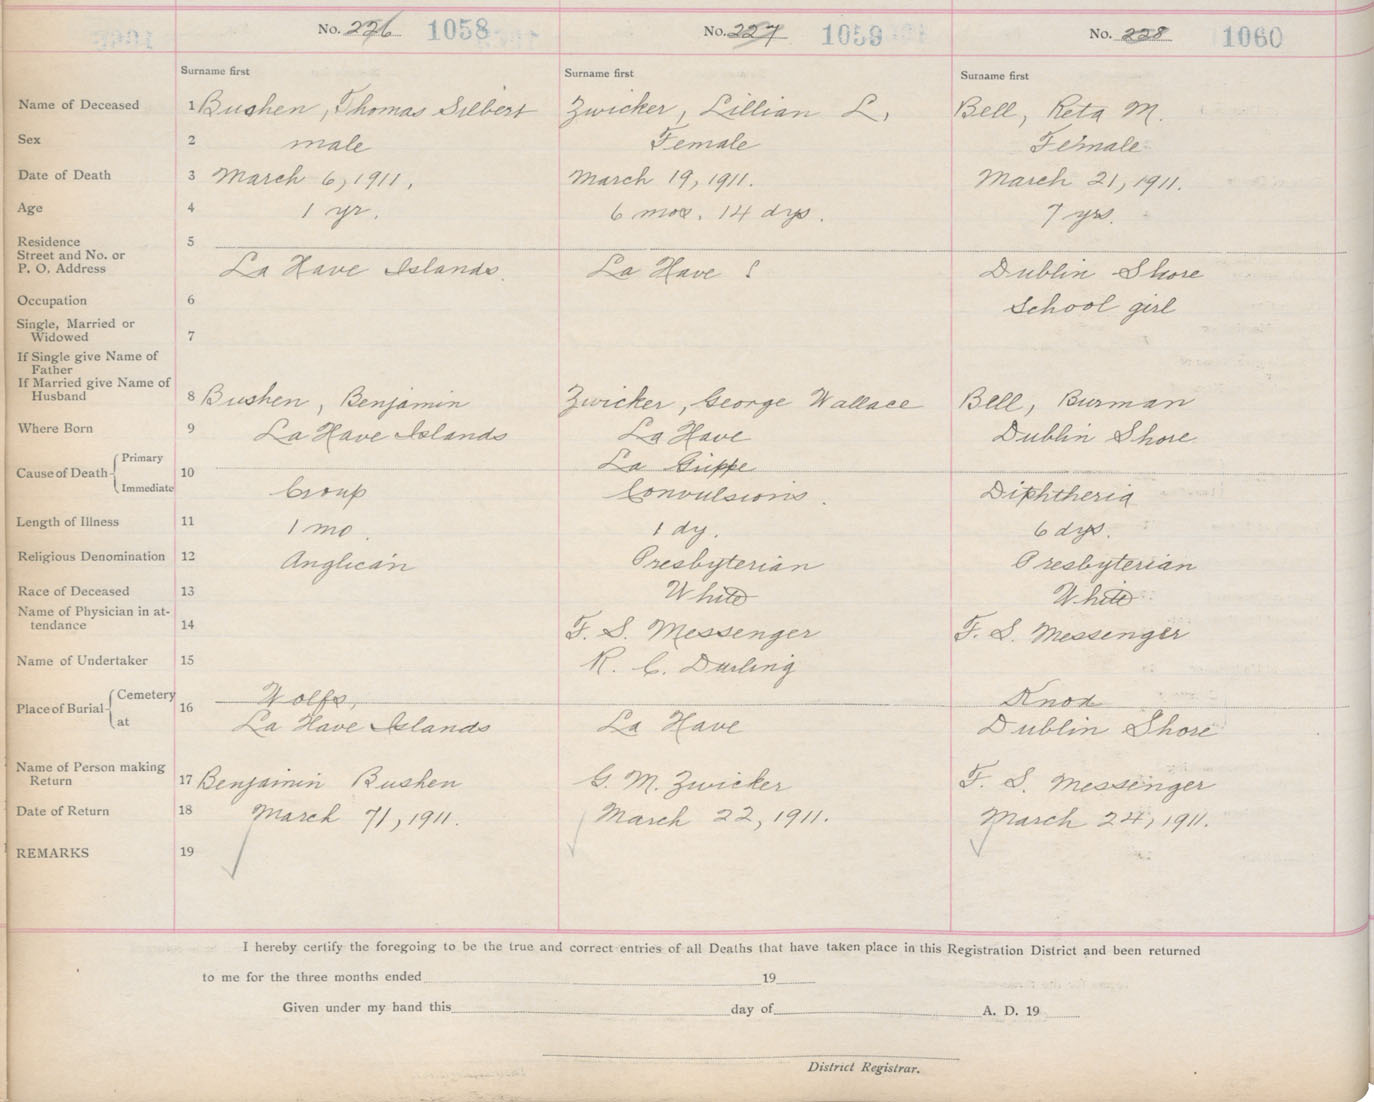 No. 226 1058 No. 227 1059 No. 228 1060
Surname first Surname first Surname first
Name of Deceased 1 Bushen, Thomas Silbert Zwicker, Lillian L. Bell, Reta M.
Sex 2 male Female Female
Date of Death 3 March 6, 1911. March 19, 1911. March 21, 1911.
Age 4 1 yr. 6 mos. 14 dys. 7 yrs.
Residence 5
Street and No. or
P. O. Address La Have Islands La Have Dublin Shore
Occupation 6 School girl
Single, Married or
Widowed 7
If Single give Name of
Father
If Married give Name of
Husband 8 Bushen, Benjamin Zwicker, George Wallace Bell, Burman
Where Born 9 La Have Islands La Have Dublin Shore
Cause of Death Primary 10 La Grippe
Immediate Croup Convulsions. Diphtheria
Length of Illness 11 1 mo. 1 dy. 6 dys.
Religious Denomination 12 Anglican Presbyterian Presbyterian
Race of Deceased 13 White White
Name of Physician in at-
tendance 14 F. S. Messenger F. S. Messenger
Name of Undertaker 15 R. C. Darling
Place of Burial Cemetery 16 Wolfs, Knox
at La Have Islands La Have Dublin Shore
Name of Person making
Return 17 Benjamin Bushen G. M. Zwicker F. S. Messenger
Date of Return 18 March 71, 1911. March 22, 1911. March 24, 1911.
REMARKS 19
I hereby certify the foregoing to be the true and correct entries of all Deaths that have taken place in this Registration District and been returned
to me for the three months ended 19
Given under my hand this day of A. D. 19
District Registrar.